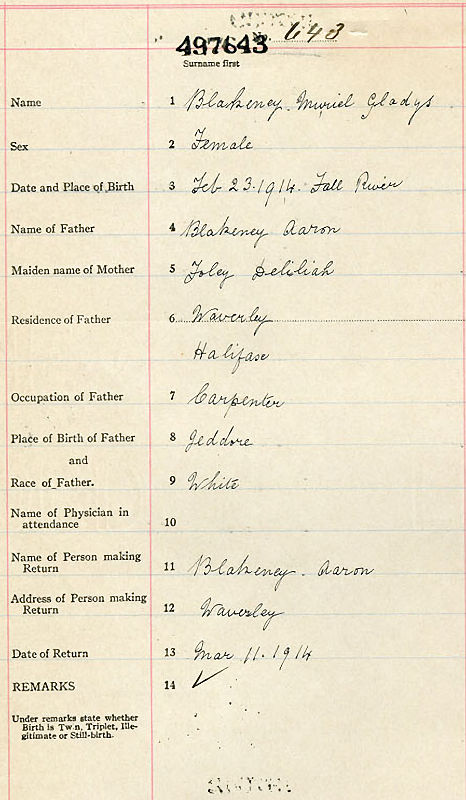 643
497643
Surname first
Name 1 Blakeney Muriel Gladys
Sex 2 Female
Date and Place of Birth 3 Feb 23. 1914. Fall River
Name of Father 4 Blakeney Aaron
Maiden name of Mother 5 Foley Deliliah
Residence of Father 6 Waverley
Halifax
Occupation of Father 7 Carpenter
Place of Birth of Father 8 Jeddore
and
Race of Father. 9 White
Name of Physician in
attendance 10
Name of Person making
Return 11 Blakeney. Aaron
Address of Person making
Return 12 Waverley
Date of Return 13 Mar 11. 1914
REMARKS 14 ✓
Under remarks state whether
Birth is Twin, Triplet, Ille-
gitimate or Still-birth.